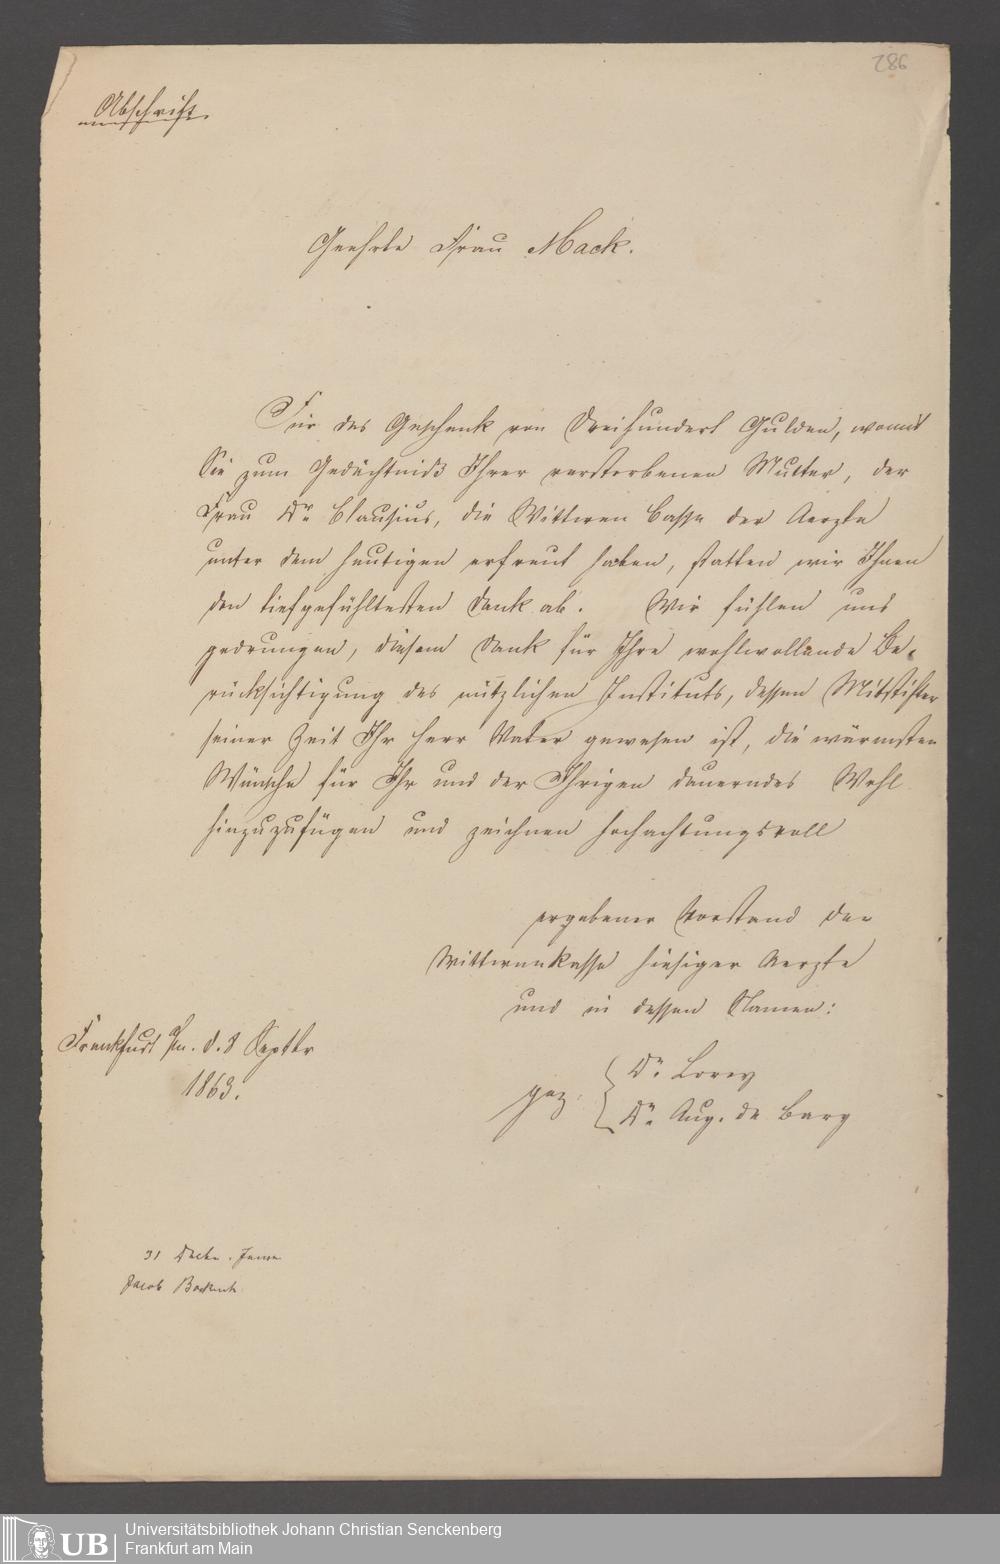 286
Abschrift.
Geehrte Frau Mack.
Für das Geschenk von Dreihundert Gulden, womit
Sie zum Gedächtniß Ihrer verstorbenen Mutter, der
Frau Dr. Clausius, die Wittwen Casse der Aerzte
unter dem heutigen erfreut haben, statten wir Ihnen
den tiefgefühltesten Dank ab. Wir fühlen uns
gedrungen, diesem Dank für Ihre wohlwollende Be-
rücksichtigung des nützlichen Instituts, dessen Mitstifter
seiner Zeit Ihr Herr Vater gewesen ist, die wärmsten
Wünsche für Ihr und der Ihrigen dauerndes Wohl
hinzuzufügen und zeichnen hochachtungsvoll
ergebener Vorstand der
Wittwenkasse hiesiger Aerzte
und in dessen Namen:
Frankfurt a/m. d. 8 Septbr
1863.
gez. Dr. Lorey
Dr. Aug. de Bary
31
Jacob
Universitätsbibliothek Johann Christian Senckenberg
Frankfurt am Main
UB